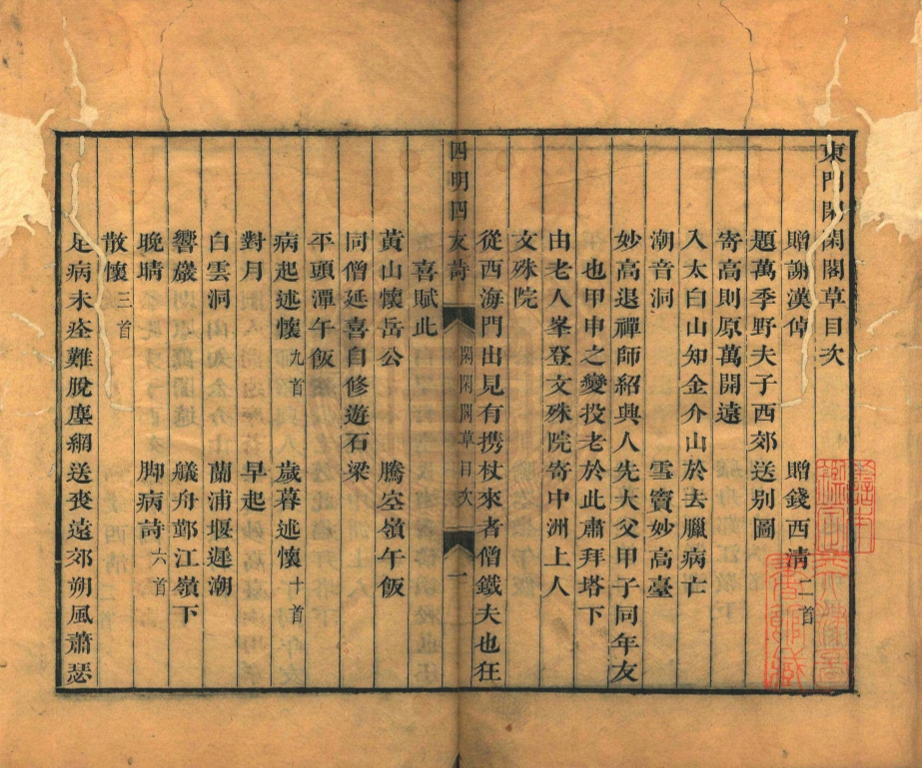 東門閑閑閣草目次
贈謝漢倬 贈錢西淸二首
題萬季野夫子西郊送別圖
寄高則原萬開遠
入太白山知金介山於去臘病亡
潮音洞 雪竇妙高臺
妙高退禪師紹興人先大父甲子同年友
也甲申之變投老於此肅拜塔下
由老人峯登文殊院寄中洲上人
文殊院
從西海門出見有携杖來者僧鐵夫也狂
四明四友詩 閑閑閣草目次 一
喜賦此
黃山懷岳公 騰空嶺午飯
同僧延喜自修遊石梁
平頭潭午飯
病起述懷九首 歲暮述懷十首
對月 早起
白雲洞 蘭浦堰遲潮
響巖 艤舟鄞江嶺下
晚晴 脚病詩六首
散懷三首
足病未痊難脫塵網送喪遠郊朔風蕭瑟